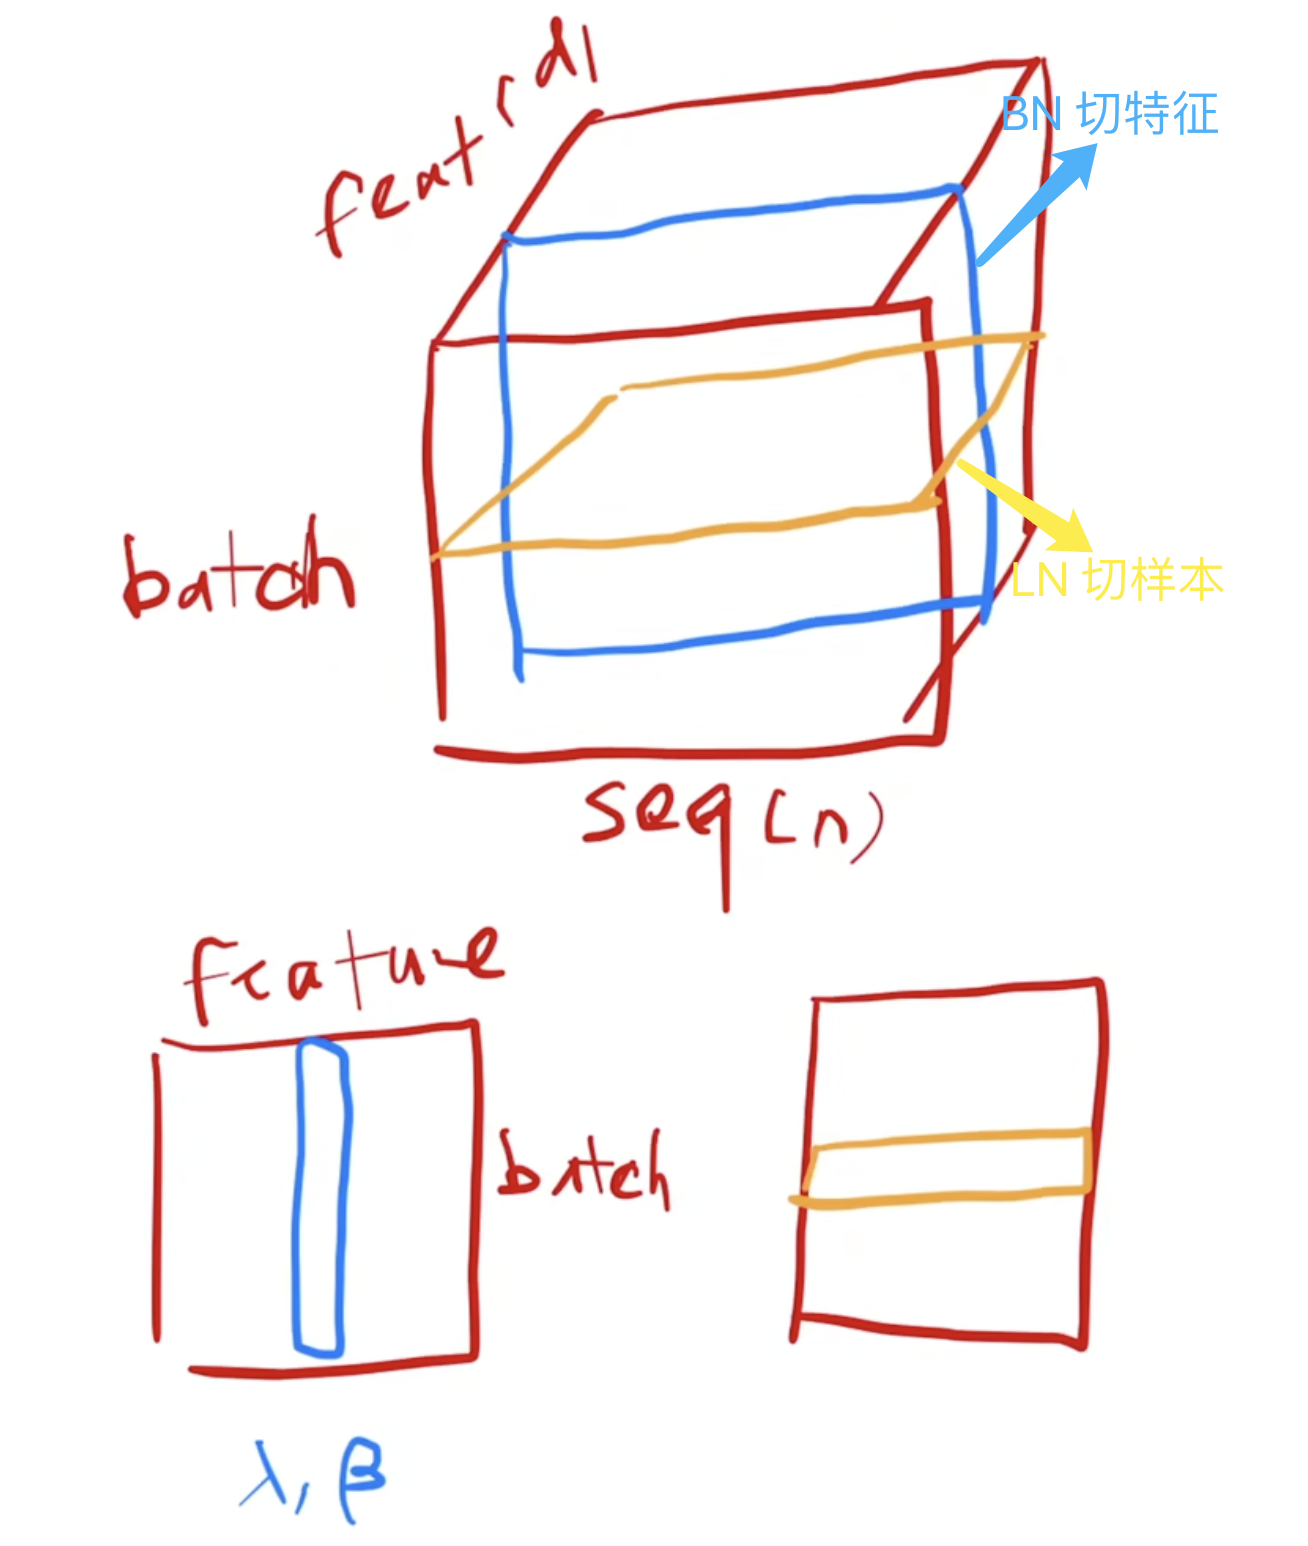 feat (d)
BN 切特征
batch
LN 切样本
seq (n)
feature
batch
λ, β